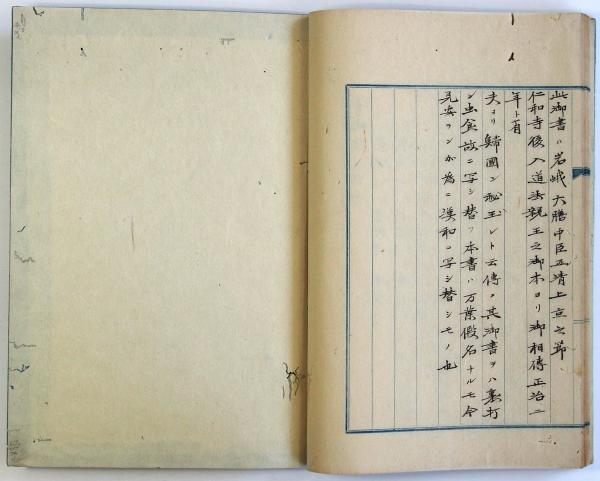 此御書ハ岩城大膳中臣正清上京之節
仁和寺後入道法親王之御本ヨリ御相傳正治二
年ト有
夫ヨリ歸國シ秘王レト云傳フ其御書ヲハ裏打
シ虫食故ニ写シ替フ本書ハ万葉假名ナルモ今
見安ランが為ニ漢和ニ写シ替シモノ也